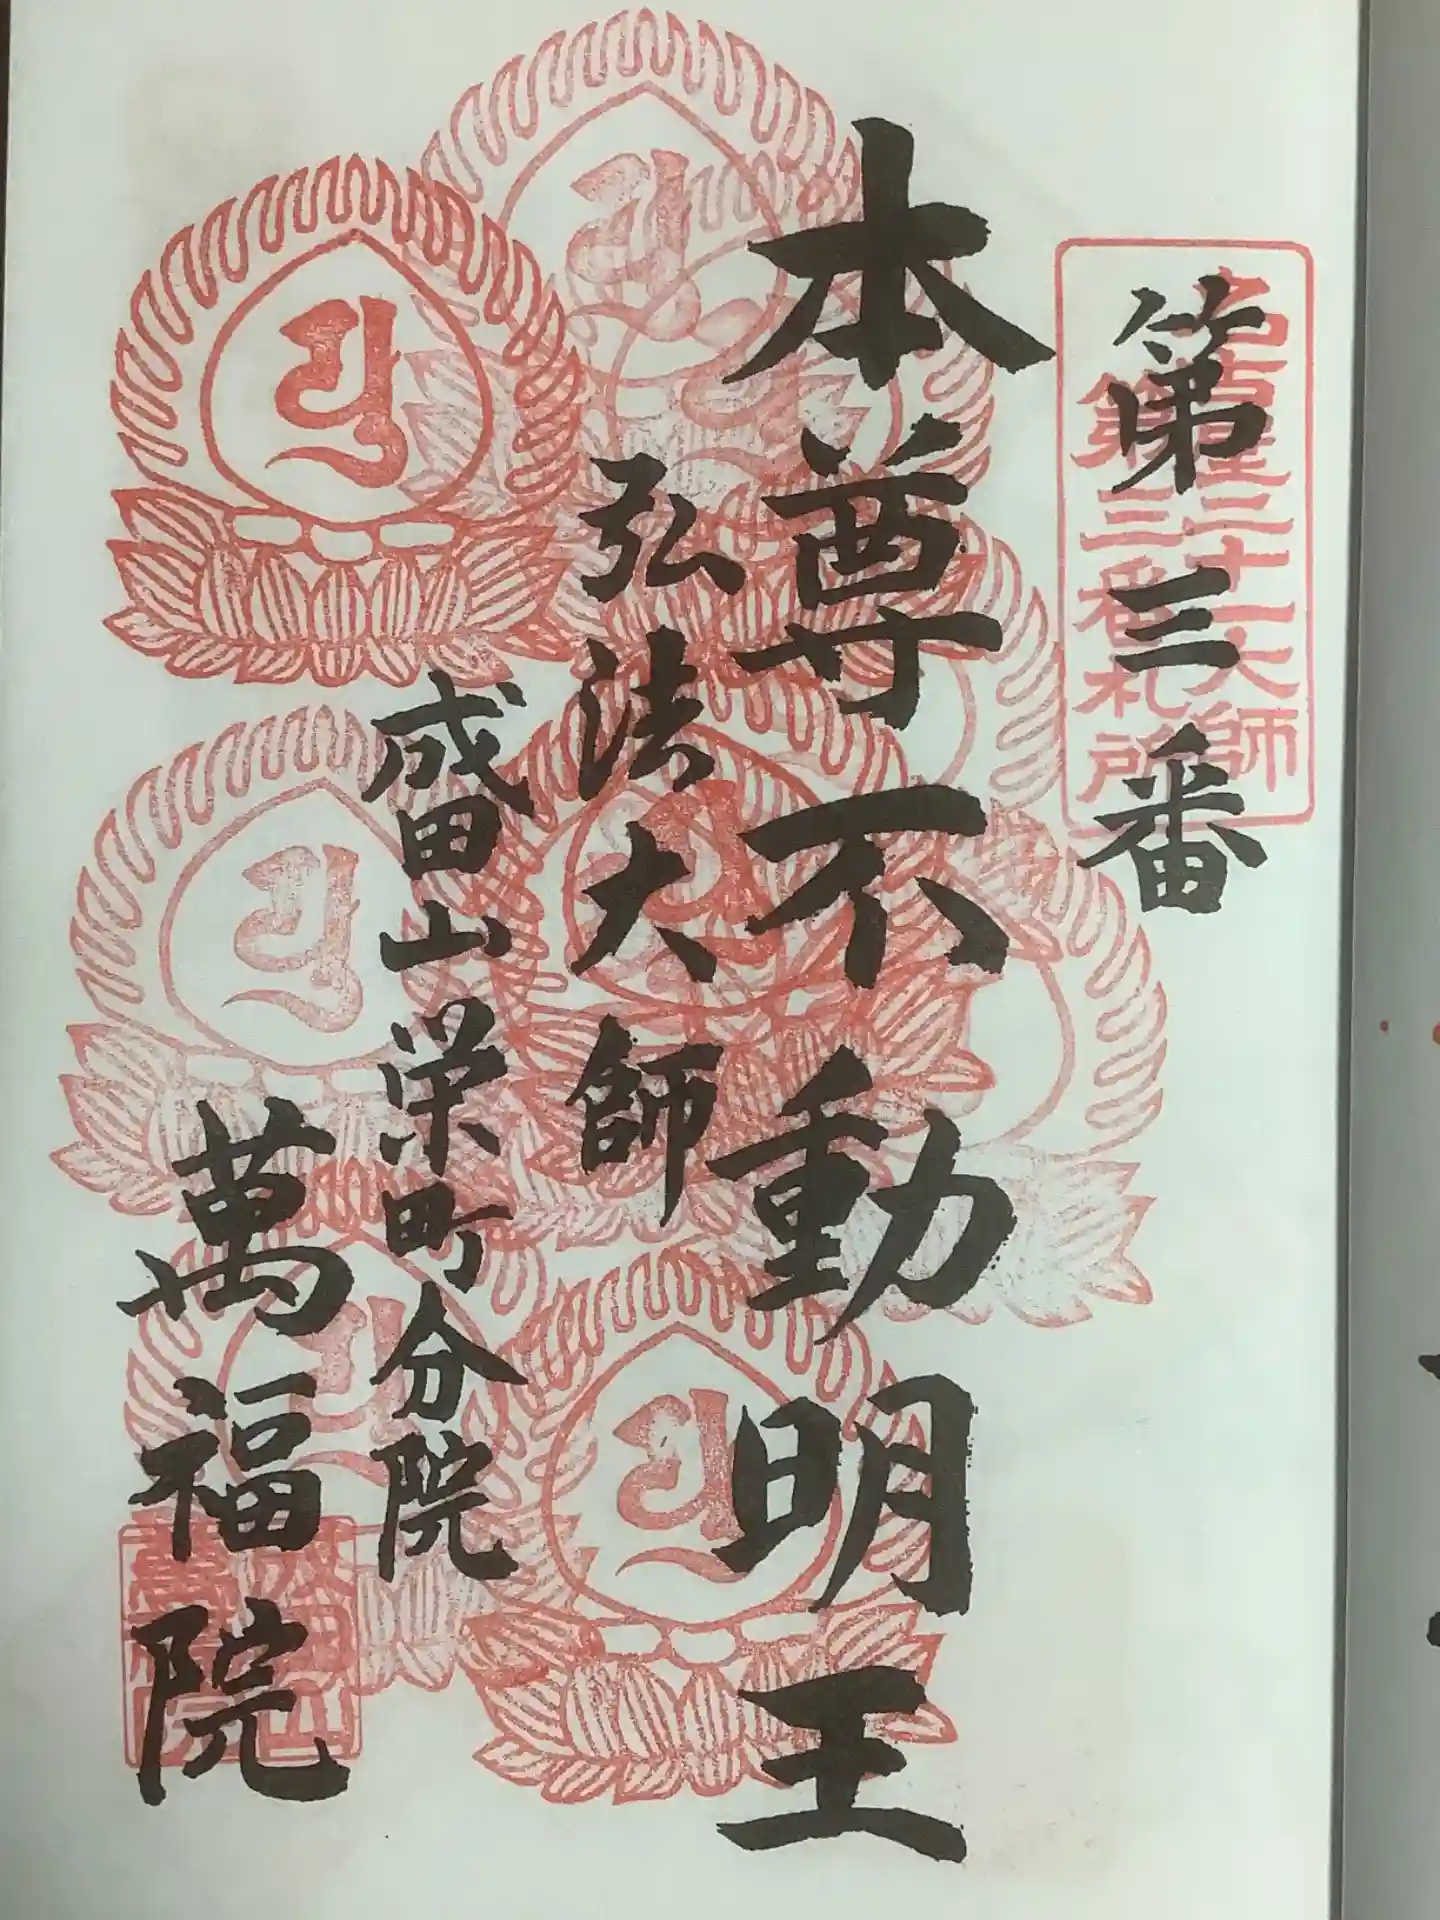 第三番
名古屋二十一大師
第三番札所
本尊不動明王
弘法大師
盛田山栄町分院
萬福院